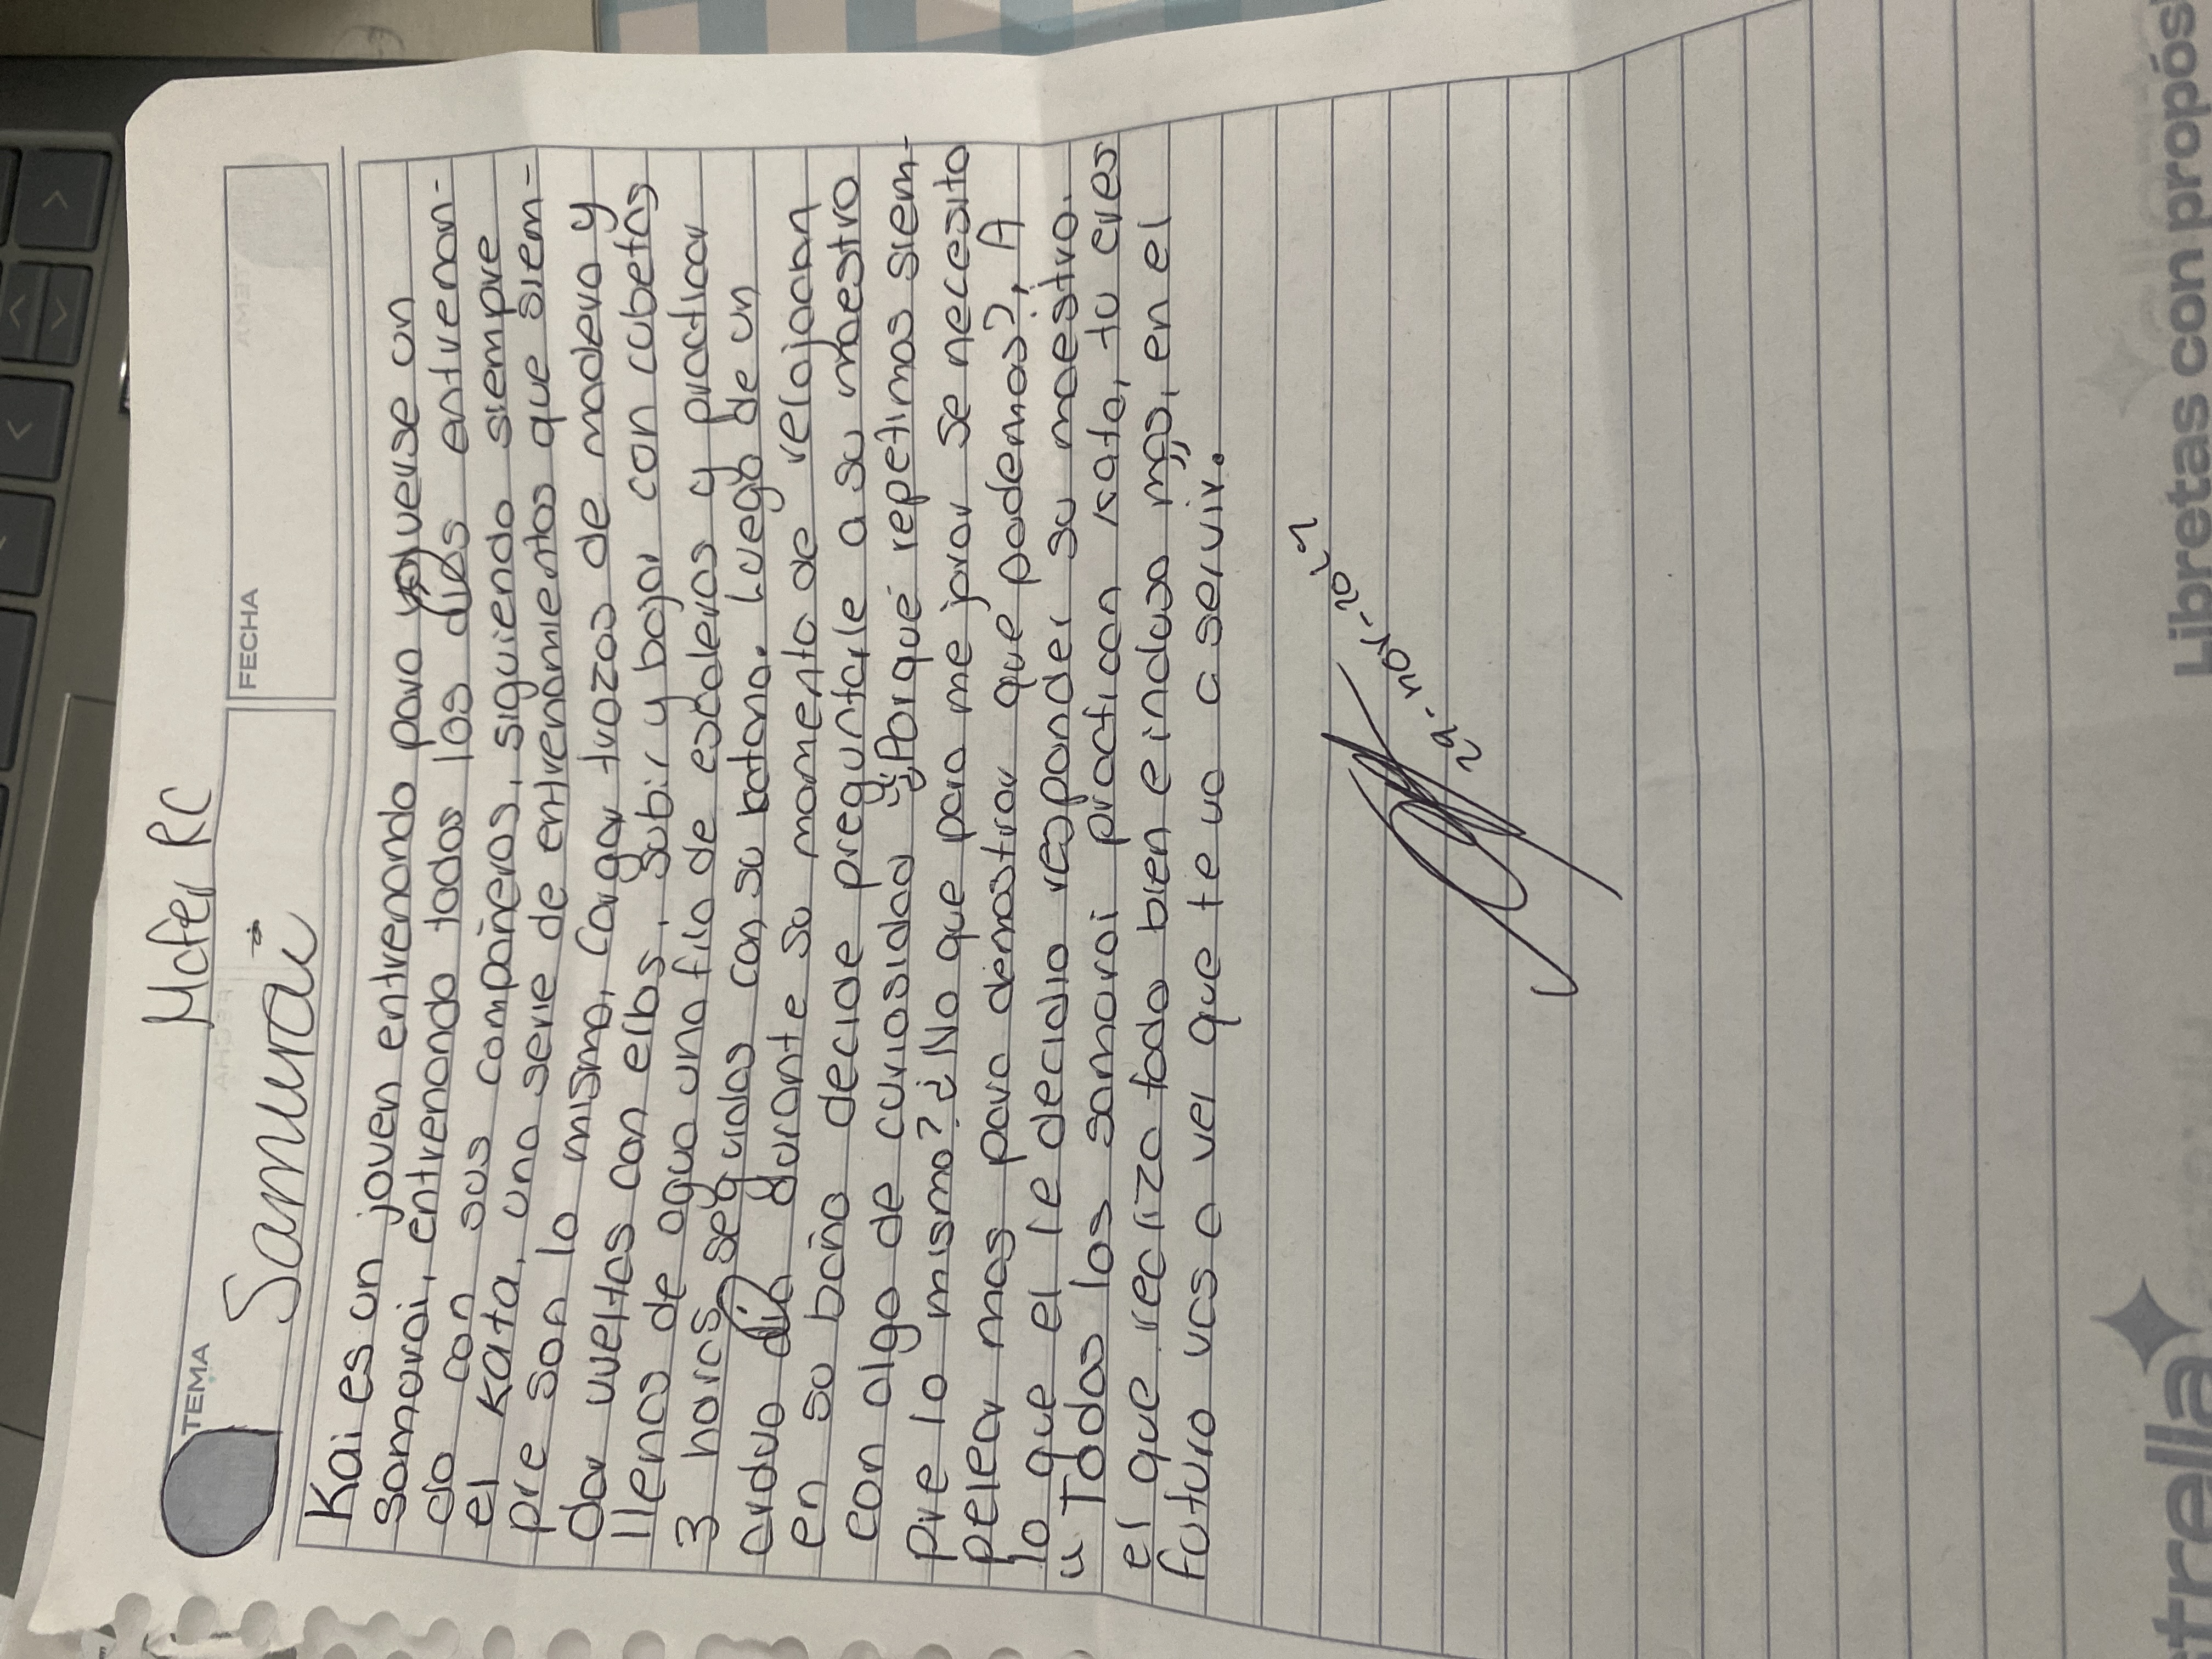 Mafer RC
TEMA
FECHA
Samurai
Kai es un joven entrenando para volverse un
samurai, entrenando todos los días entrenan-
do con sus compañeros, siguiendo siempre
el kata, una serie de entrenamientos que siem-
pre son lo mismo, cargar trozos de madera y
dar vueltas con ellos, subir y bajar con cubetas
llenas de agua una fila de escaleras y practicar
3 horas seguidas con su katana. Luego de un
arduo día durante su momento de relajacan
en su baño decide preguntarle a su maestro
con algo de curiosidad "¿Porqué repetimos siem-
pre lo mismo? ¿No que para me jorar se neccesito
pelear mas para demostrar que podemos?, A
lo que el le decidio responder su maestro.
" Todos los samurai practican kata, tu eres
el que realizo todo bien e incluso mas, en el
futuro vas a ver que te va a servir.
29-nov-2021
strella
Libretas con propós